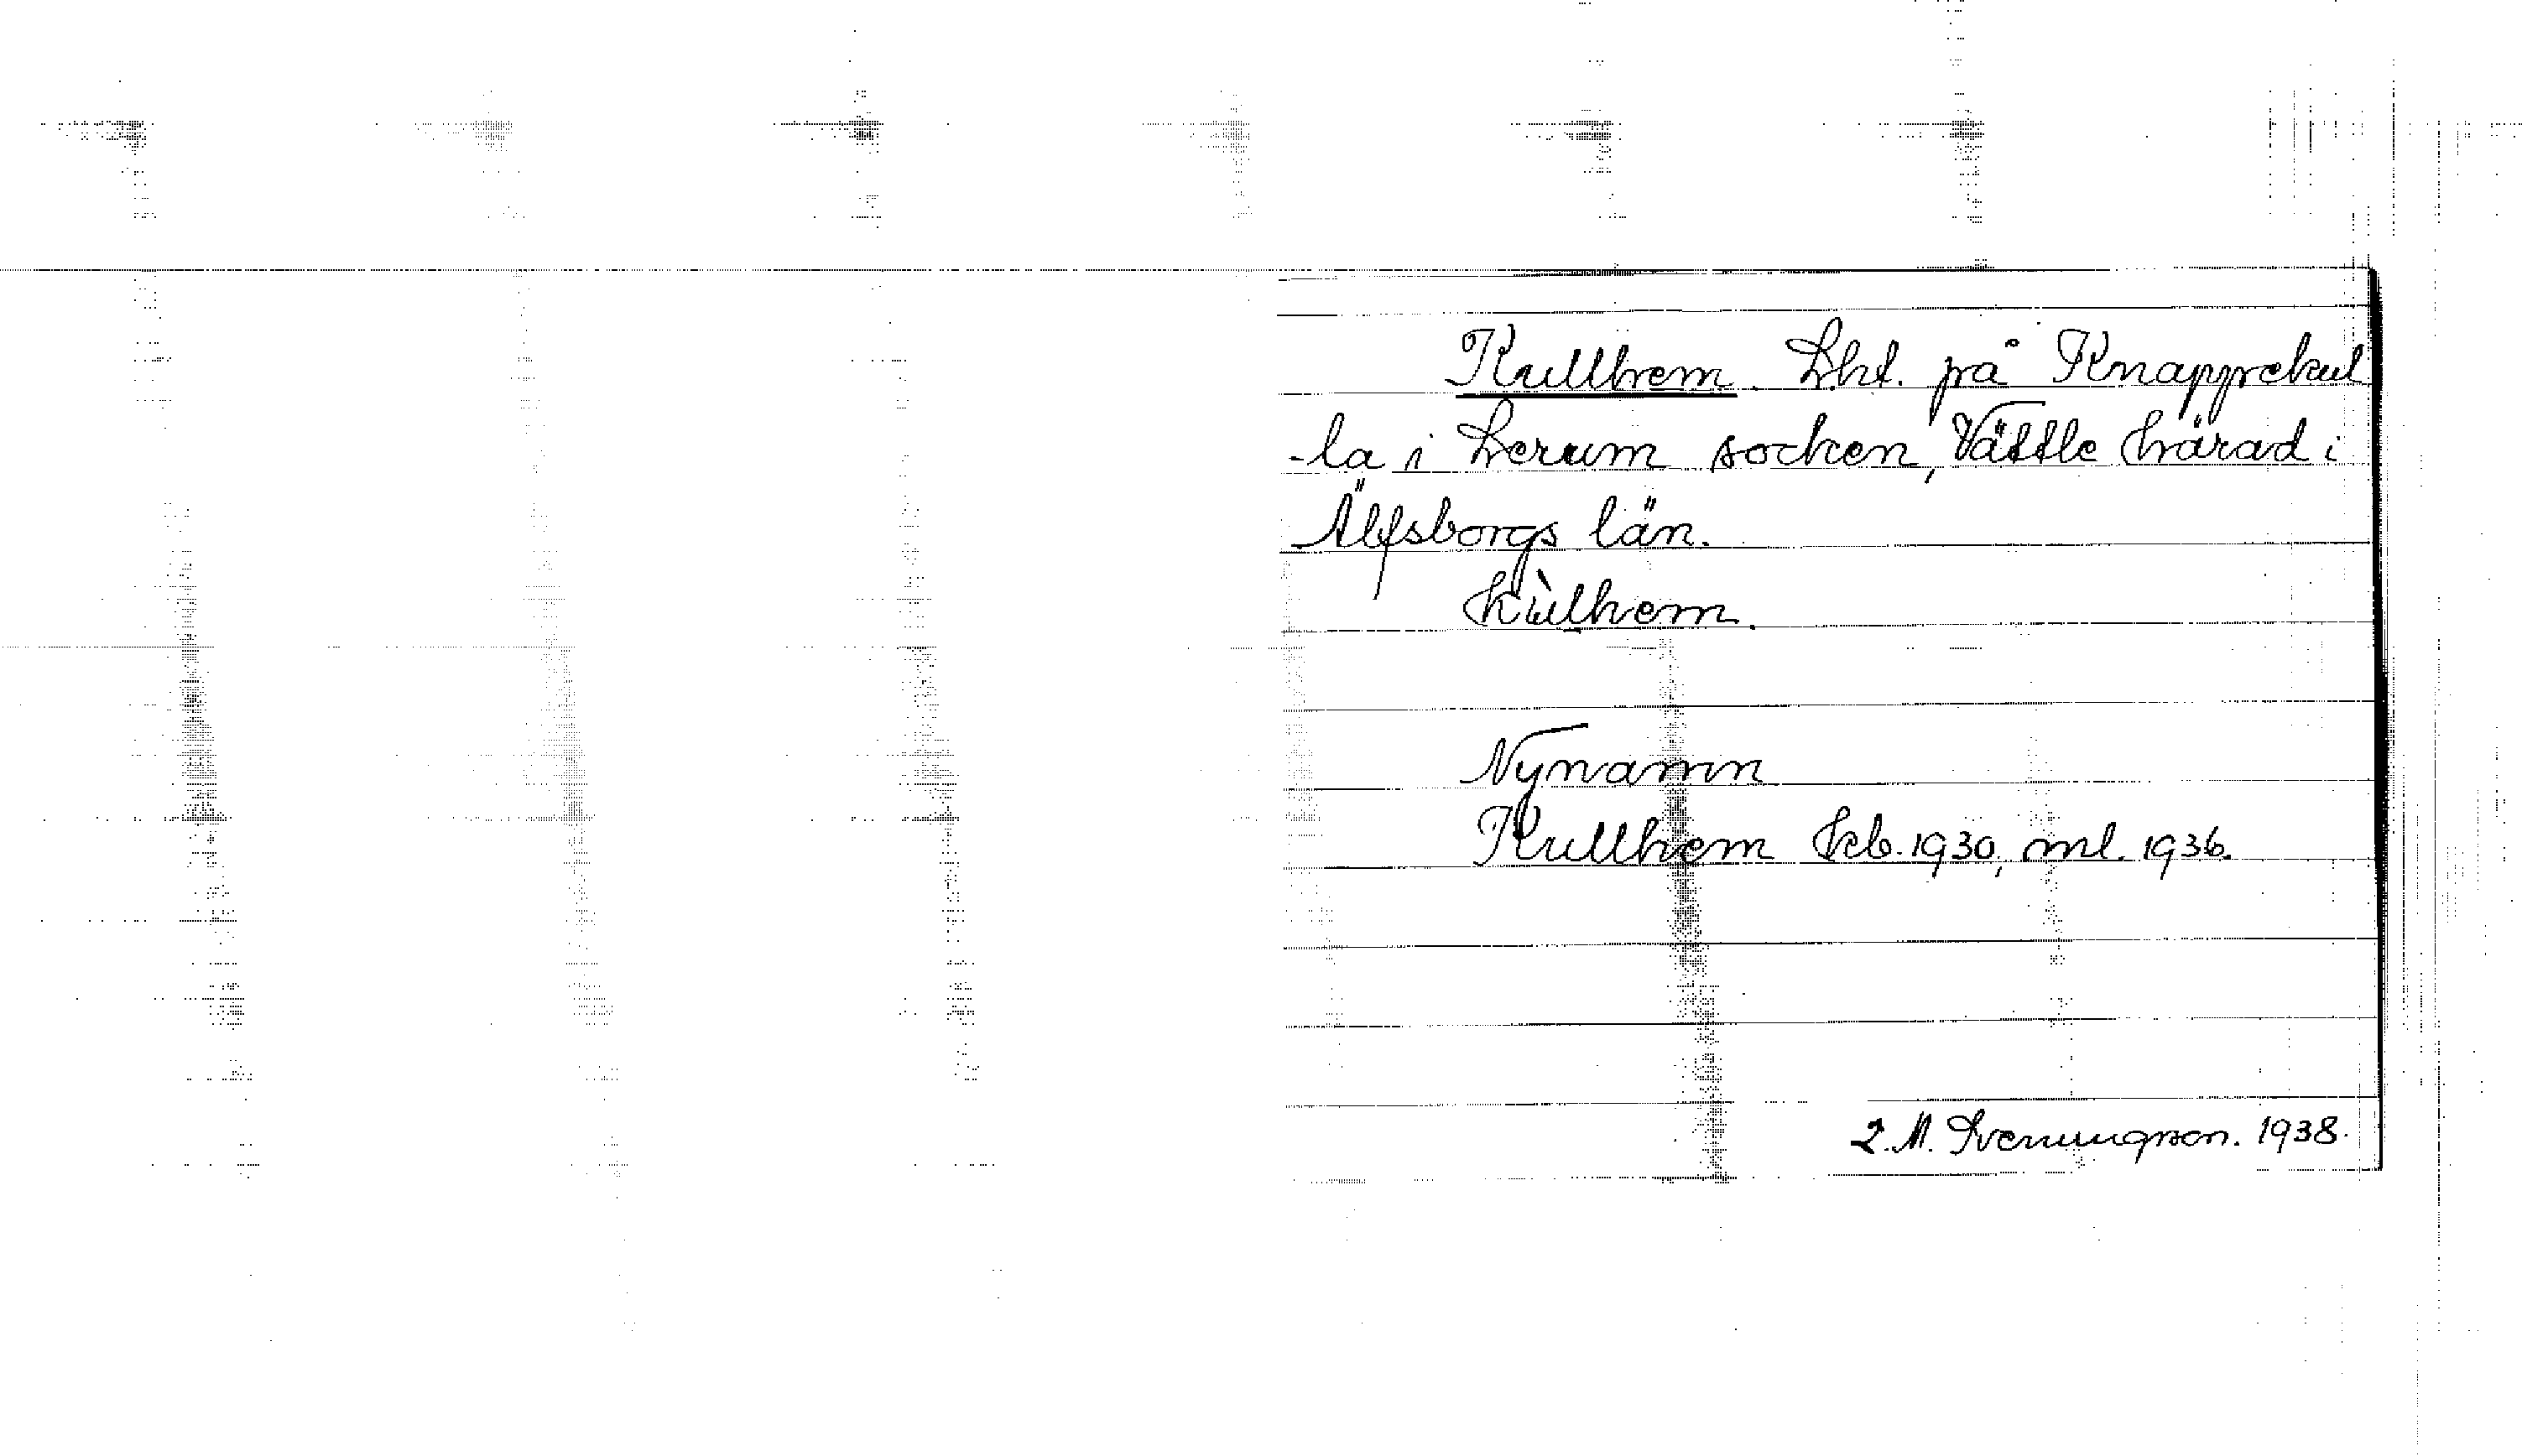 Kullhem. Lht. på Knappekul
-la i Lerum socken, Vättle härad i
Älfsborgs län.
Kùlhem.
Nynamn
Kullhem Feb. 1930, ml. 1936.
2. M. Svenungson. 1938.